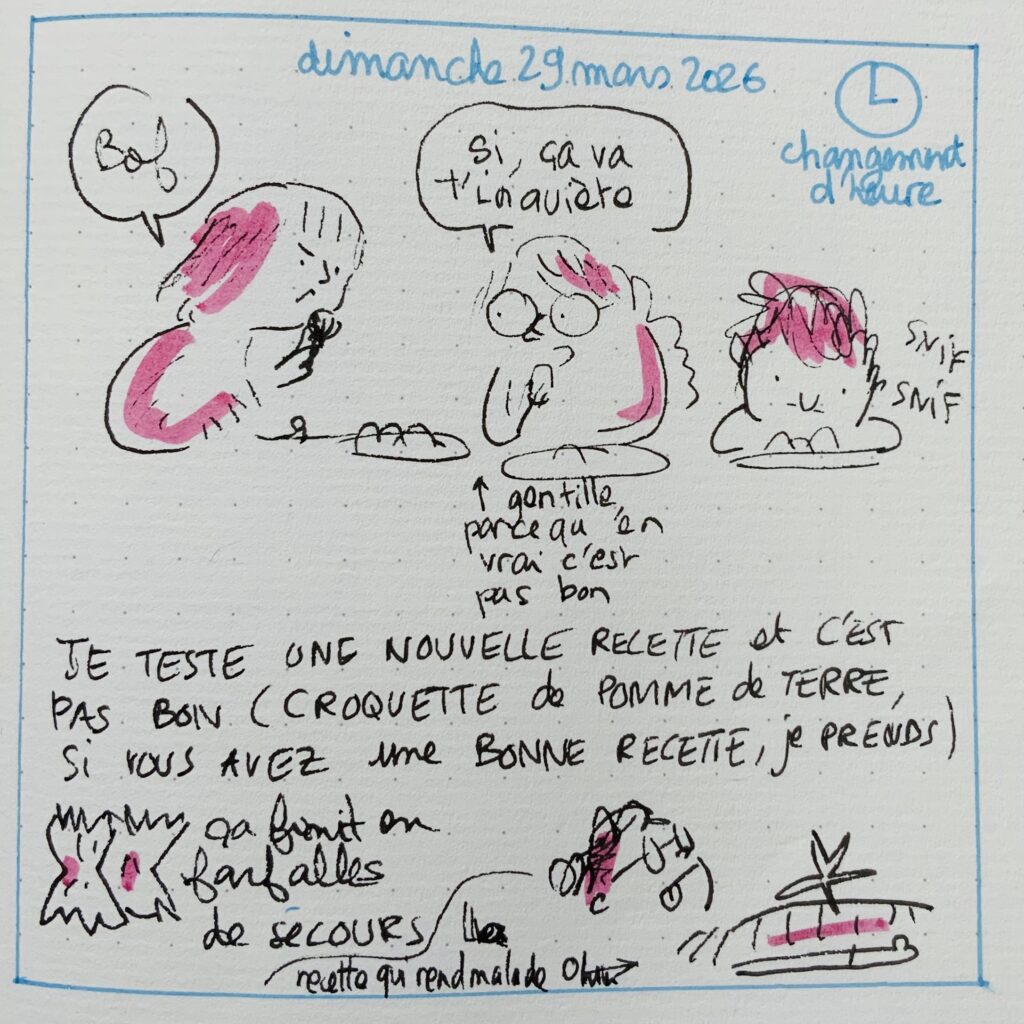 dimanche 29 mars 2026
changement
d'heure
Bof
Si, ça va
t'inquiète
SNIF
SNIF
↑ gentille,
parce qu'en
vrai c'est
pas bon
JE TESTE UNE NOUVELLE RECETTE et C'EST
PAS BON (CROQUETTE de POMME de TERRE,
Si vous AVEZ une BONNE RECETTE, je PRENDS)
ça finit en
farfalles
de secours
recette qui rend malade →